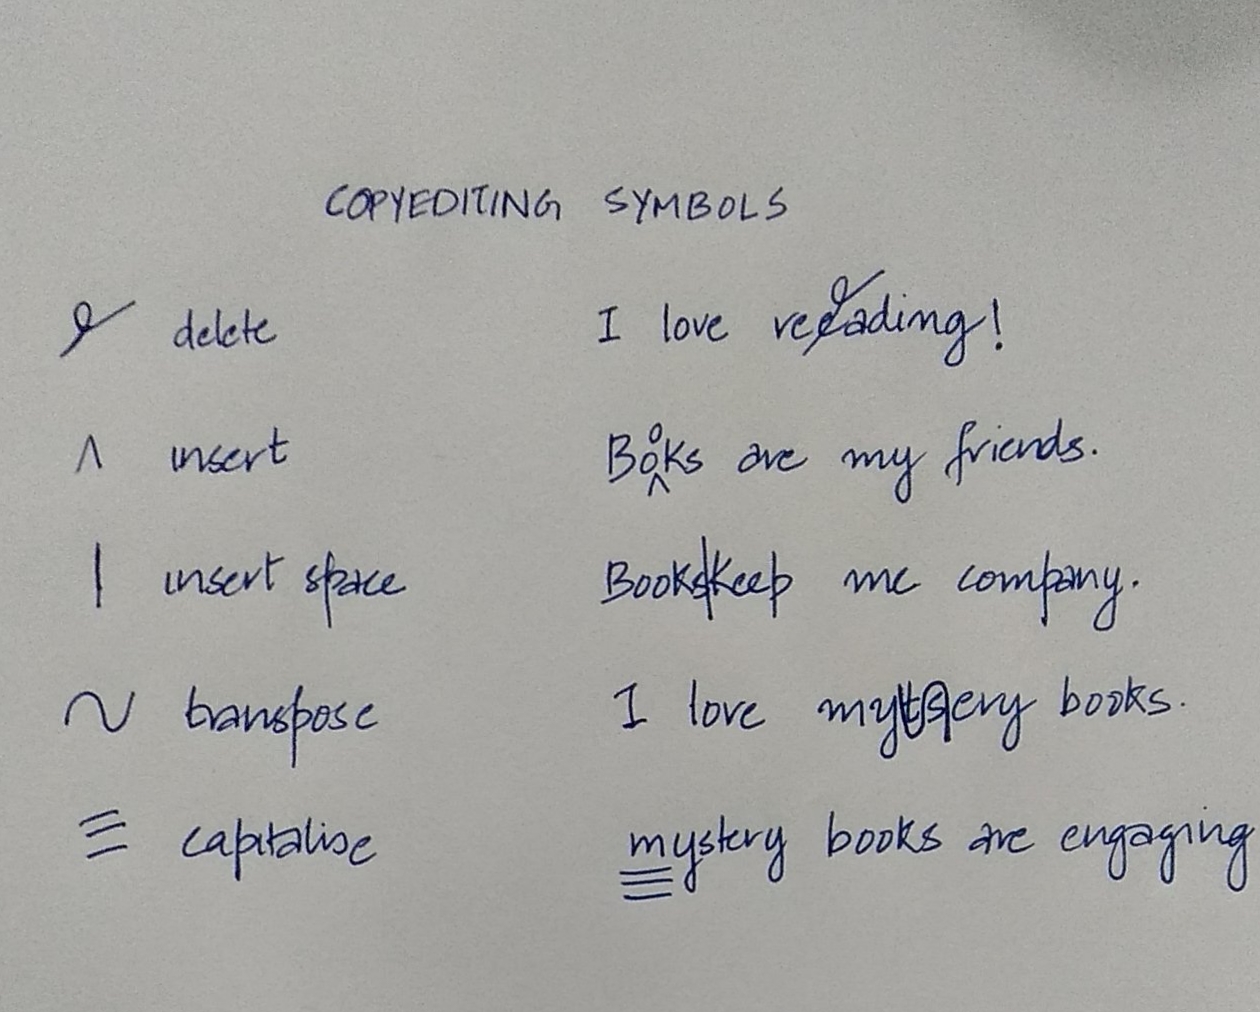 COPYEDITING SYMBOLS
delete I love reeading!
∧ insert Boks are my friends.
o
∧
| insert space Books|keep me company.
∼ transpose I love mytsery books.
≡ capitalise mystery books are engaging